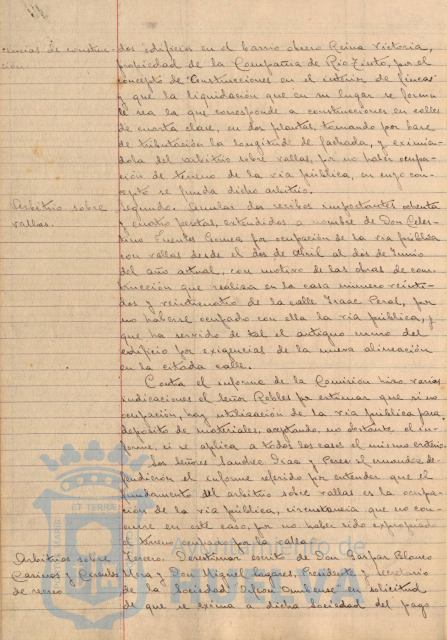 cencias de construc-
ción.
dos edificios en el barrio obrero Reina Victoria,
propiedad de la Compañia de Rio Tinto, por el
concepto de "Construcciones en el interior de fincas"
y que la liquidación que en su lugar se forme
le sea la que corresponde a construcciones en calles
de cuarta clase, en dos plantas, tomando por base
de tributación la longitud de fachada, y eximien-
dola del arbitrio sobre vallas, por no haber ocupa-
ción de terreno de la via pública, en cuyo con-
cepto se funda dicho arbitrio.
Arbitrio sobre
vallas.
Segundo. Anular dos recibos importantes ochenta
y cuatro pesetas, extendidos a nombre de Don Celes-
tino Fuentes Gomez por ocupación de la via pública
con vallas desde el dos de Abril al dos de Junio
del año actual, con motivo de las obras de cons-
trucción que realiza en la casa número veintidos
y veinticuatro de la calle Isaac Peral, por
no haberse ocupado con ella la via pública, y
que ha servido de tal el antiguo muro del
edificio por exigencias de la nueva alineación
en la citada calle.
Contra el informe de la Comisión hizo varias
indicaciones el Señor Robles por estimar que si no
ocupación, hay utilización de la via pública para
depósito de materiales, aceptando, no obstante el in-
forme, si se aplica a todos los casos el mismo criterio.
Los Señores Sanchez y Perez Hernandez de-
fendieron el informe referido por entender que el
fundamento del arbitrio sobre vallas es la ocupa-
ción de la via pública, circunstancia que no con-
curre en este caso, por no haber sido expropiado
el terreno ocupado por la valla.
Arbitrios sobre
Casinos y Circulos
de recreo
Tercero. Desestimar escrito de Don Gaspar Blanco
Mora y Don Miguel Lagares, Presidente y Secretario
de la Sociedad "Orfeon Onubense" en solicitud
de que se exima a dicha Sociedad del pago
Ayuntamiento de
HUELVA